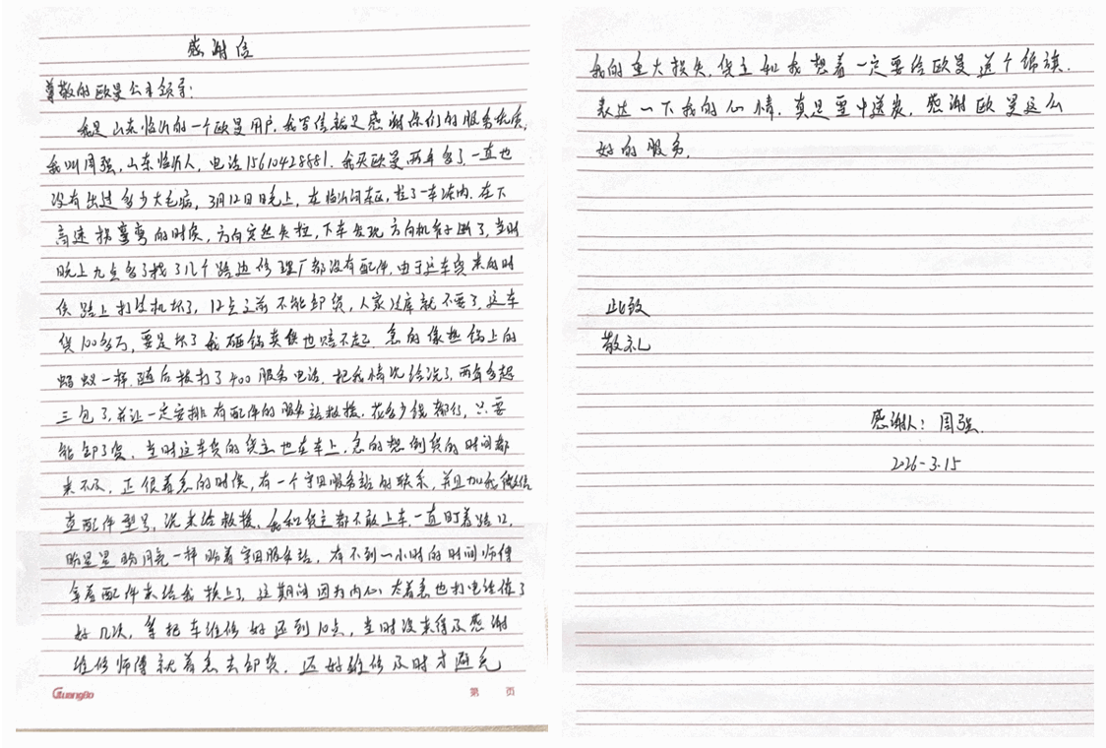 感谢信
尊敬的欧曼公司领导:
我是山东临沂的一个欧曼用户,我写信就是感谢你们的服务优质,
我叫周强,山东临沂人,电话15610428881.我买欧曼两年多了一直也
没有出过多少大毛病,3月12日晚上,在临沂河东区,拉了一车冻肉.在下
高速拐弯弯的时候,方向突然失控,下车发现方向机 断了,当时
晚上九点多了找了几个路边修理厂都没有配件.由于这车货来的时
候路上打 机坏了,12点之前不能卸货,人家过库就不要了,这车
货100多万,要是坏了我砸锅卖铁也赔不起.急的像热锅上的
蚂蚁一样.随后拨打了400服务电话.把我情况给说了,两年多超
三包了,并让一定安排有配件的服务站救援.花多少钱都行,只要
能卸了货.当时这车货的货主也在车上,急的想倒货的时间都
来不及.正很着急的时候,有一个宇田服务站的联系,并且加我微信
查配件型号,说来给救援.我和货主都不敢上车.一直盯着路口,
盼星星盼月亮一样盼着宇田服务站.有不到一小时的时间师傅
拿着配件来给我换上了,这期间因为内心太着急也打电话催了
好几次,等把车维修好还到10点,当时没来得及感谢
维修师傅就着急去卸货.还好维修及时才避免
GuangBo
第 页
我的重大损失.货主和我想着一定要给欧曼送个锦旗.
表达一下我的心情.真是雪中送炭.感谢欧曼这么
好的服务.
此致
敬礼
感谢人:周强.
2026-3.15